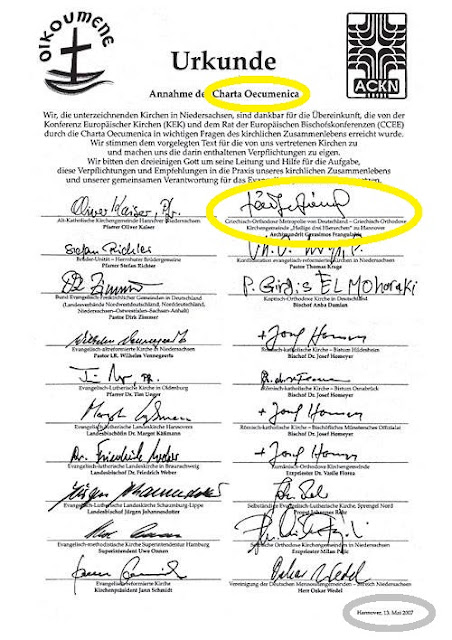 OIKOUMENE
ACKN
Urkunde
Annahme der Charta Oecumenica
Wir, die unterzeichnenden Kirchen in Niedersachsen, sind dankbar für die Übereinkunft, die von der
Konferenz Europäischer Kirchen (KEK) und dem Rat der Europäischen Bischofskonferenzen (CCEE)
durch die Charta Oecumenica in wichtigen Fragen des kirchlichen Zusammenlebens erreicht wurde.
Wir stimmen dem vorgelegten Text für die von uns vertretenen Kirchen zu
und machen uns die darin enthaltenen Verpflichtungen zu eigen.
Wir bitten den dreieinigen Gott um seine Leitung und Hilfe für die Aufgabe,
diese Verpflichtungen und Empfehlungen in die Praxis unseres kirchlichen Zusammenlebens
und unserer gemeinsamen Verantwortung für das
Oliver Kaiser, Pfr.
Alt-Katholische Kirchengemeinde Hannover-Niedersachsen
Pfarrer Oliver Kaiser
Griechisch-Orthodoxe Metropolie von Deutschland – Griechisch-Orthodoxe
Kirchengemeinde „Heilige drei Hierarchen" zu Hannover
Archimandrit Gerasimos Frangulakis
Stefan Richter
Brüder-Unität – Herrnhuter Brüdergemeine
Pfarrer Stefan Richter
Konföderation evangelisch-reformierter Kirchen in Niedersachsen
Pastor Thomas Kruge
Bund Evangelisch-Freikirchlicher Gemeinden in Deutschland
(Landesverbände Nordwestdeutschland, Norddeutschland,
Niedersachsen-Ostwestfalen-Sachsen-Anhalt)
Pastor Dirk Zimmer
P. Girgis EL Moharaki
Koptisch-Orthodoxe Kirche in Deutschland
Bischof Anba Damian
Evangelisch-altreformierte Kirche in Niedersachsen
Pastor i.R. Wilhelm Vennegeerts
+ Josef Homeyer
Römisch-katholische Kirche – Bistum Hildesheim
Bischof Dr. Josef Homeyer
Evangelisch-Lutherische Kirche in Oldenburg
Pfarrer Dr. Tim Unger
Römisch-katholische Kirche – Bistum Osnabrück
Bischof Dr. Josef Homeyer
Margot Käßmann
Evangelisch-lutherische Landeskirche Hannovers
Landesbischöfin Dr. Margot Käßmann
+ Josef Homeyer
Römisch-katholische Kirche – Bischöflich Münsterscher Offizialat
Bischof Dr. Josef Homeyer
Dr. Friedrich Weber
Evangelisch-lutherische Landeskirche in Braunschweig
Landesbischof Dr. Friedrich Weber
+ Josef Homeyer
Rumänisch-Orthodoxe Kirchengemeinde
Erzpriester Dr. Vasile Florea
Jürgen Johannesdotter
Evangelisch-Lutherische Landeskirche Schaumburg-Lippe
Landesbischof Jürgen Johannesdotter
Selbständige Evangelisch-Lutherische Kirche, Sprengel Nord
Propst Johannes Rehr
Evangelisch-methodistische Kirche Superintendentur Hamburg
Superintendent Uwe Onnen
Serbisch-Orthodoxe Kirchengemeinden in Niedersachsen
Erzpriester Milan Pejic
Evangelisch-reformierte Kirche
Kirchenpräsident Jann Schmidt
Oskar Wedel
Vereinigung der Deutschen Mennonitengemeinden – Bereich Niedersachsen
Herr Oskar Wedel
Hannover, 13. Mai 2007